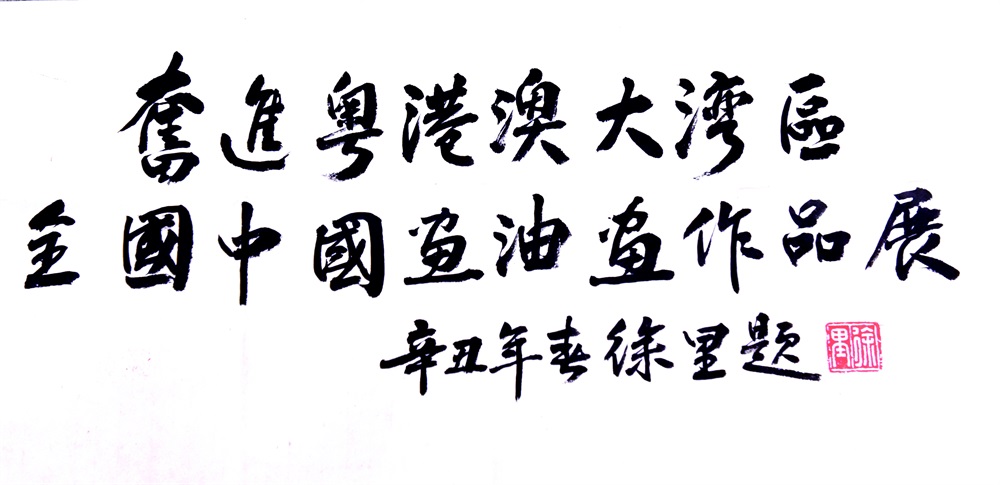 奮進粤港澳大湾區
全國中國画油画作品展
辛丑年春徐里题
徐里